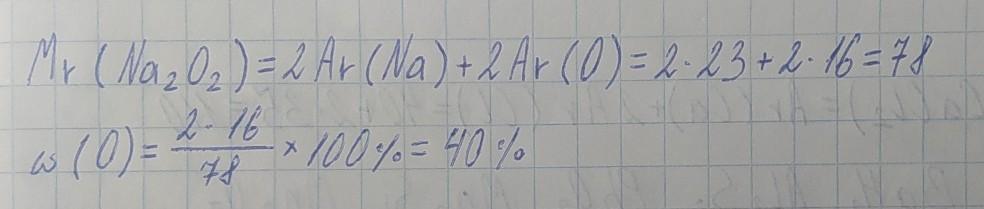 Mr (Na₂O₂) = 2Ar(Na) + 2Ar(O) = 2·23 + 2·16 = 78
ω (O) = 2·16/78 × 100% = 40%